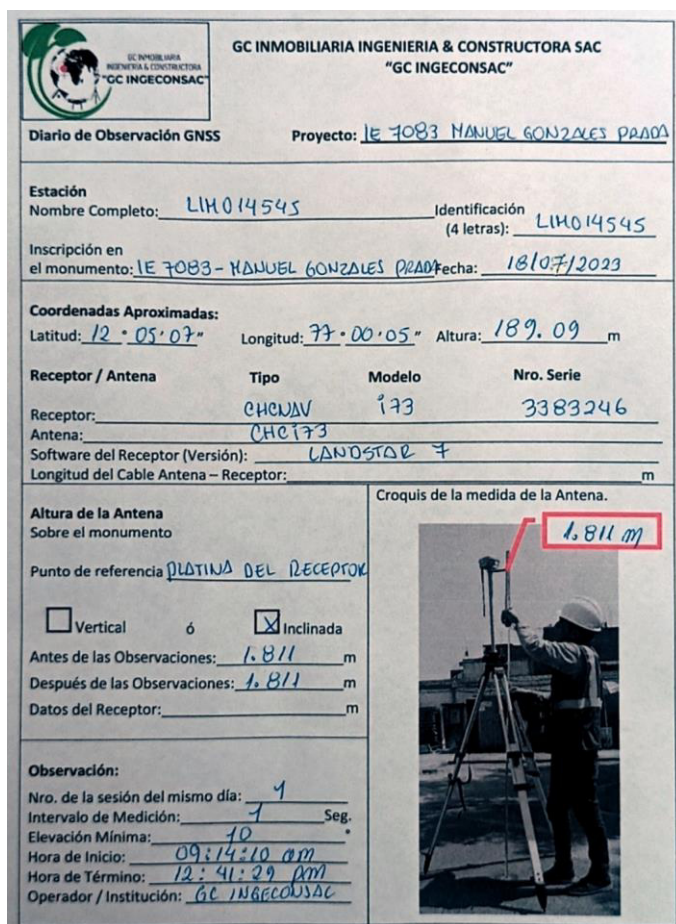 GC INMOBILIARIA
INGENIERIA & CONSTRUCTORA
"GC INGECONSAC"
GC INMOBILIARIA INGENIERIA & CONSTRUCTORA SAC
"GC INGECONSAC"
Diario de Observación GNSS Proyecto: IE 7083 MANUEL GONZALES PRADA
Estación
Nombre Completo: LIM01454S Identificación
(4 letras): LIM01454S
Inscripción en
el monumento: IE 7083 - MANUEL GONZALES PRADA Fecha: 18/07/2023
Coordenadas Aproximadas:
Latitud: 12 ° 05 ' 07 " Longitud: 77 ° 00 ' 05 " Altura: 189.09 m
Receptor / Antena Tipo Modelo Nro. Serie
Receptor: CHCNAV i73 3383246
Antena: CHCi73
Software del Receptor (Versión): LANDSTAR 7
Longitud del Cable Antena – Receptor: m
Altura de la Antena
Sobre el monumento
Punto de referencia PLATINA DEL RECEPTOR
Vertical ó X Inclinada
Antes de las Observaciones: 1.811 m
Después de las Observaciones: 1.811 m
Datos del Receptor: m
Croquis de la medida de la Antena.
1.811 m
Observación:
Nro. de la sesión del mismo día: 1
Intervalo de Medición: 1 Seg.
Elevación Mínima: 10 °
Hora de Inicio: 09:14:10 am
Hora de Término: 12:41:29 pm
Operador / Institución: GC INGECONSAC